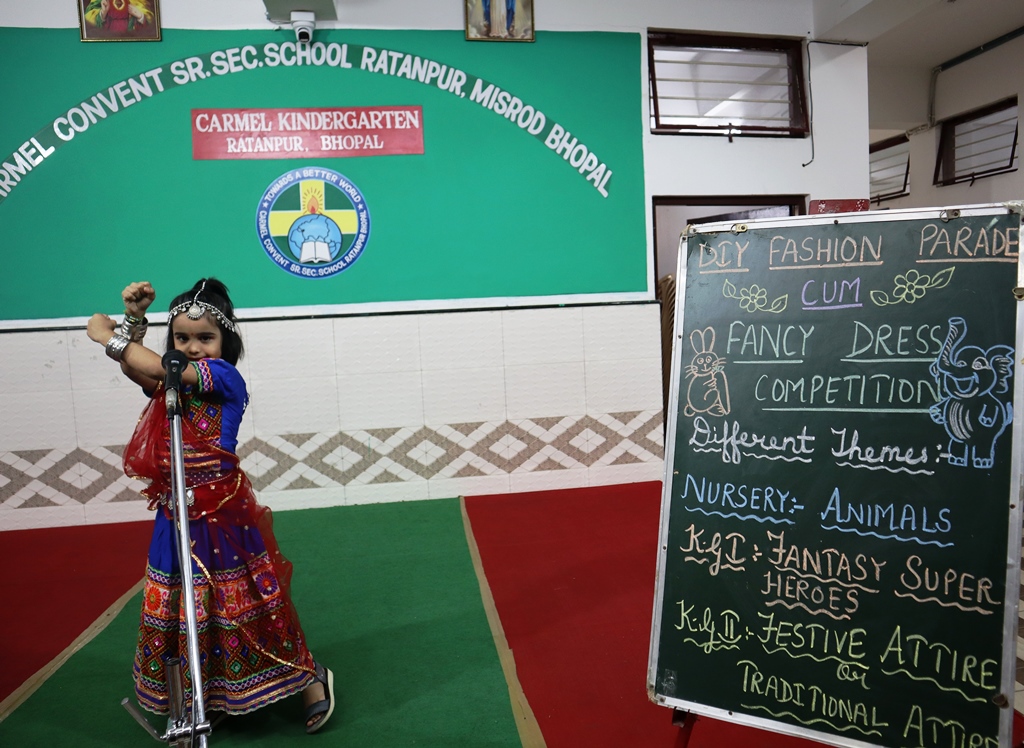 ARMEL CONVENT SR.SEC.SCHOOL RATANPUR, MISROD BHOPAL
CARMEL KINDERGARTEN
RATANPUR, BHOPAL
TOWARDS A BETTER WORLD
CARMEL CONVENT SR.SEC.SCHOOL RATANPUR BHOPAL
DIY FASHION PARADE
CUM
FANCY DRESS
COMPETITION
Different Themes:-
NURSERY:- ANIMALS
K.G I:- FANTASY SUPER
HEROES
K.G II:- FESTIVE ATTIRE
or
TRADITIONAL ATTIRE